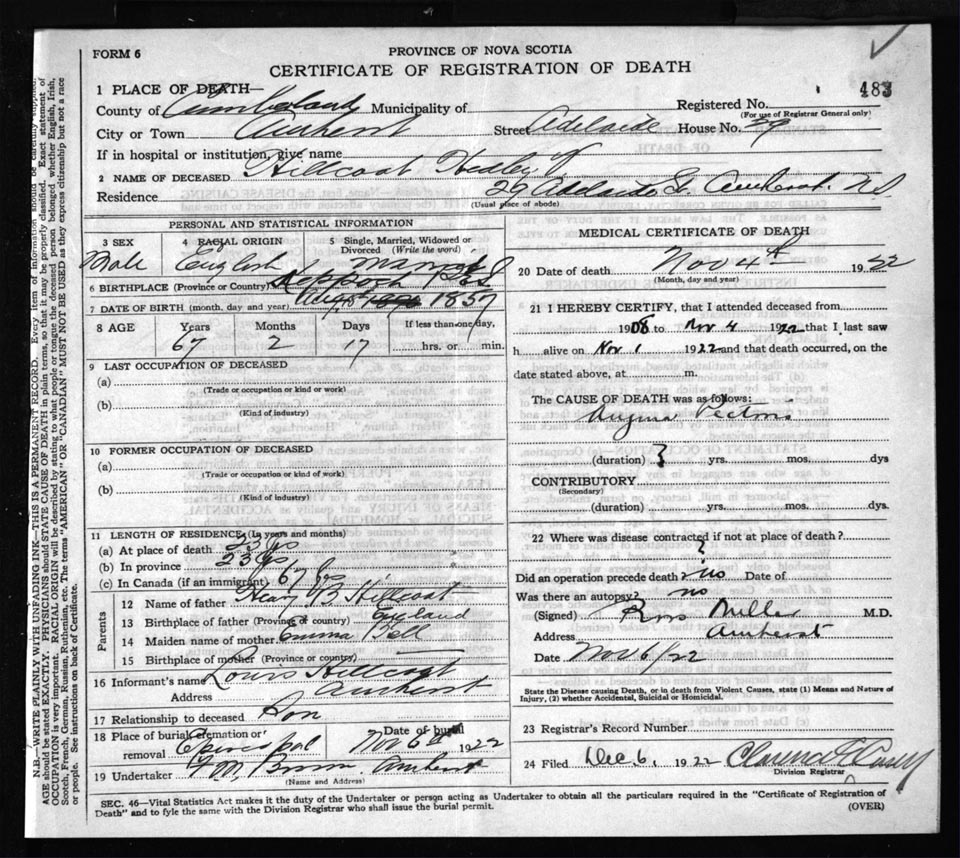 FORM 6
PROVINCE OF NOVA SCOTIA
CERTIFICATE OF REGISTRATION OF DEATH
483
1 PLACE OF DEATH—
County of Cumberland Municipality of
Registered No.
(For use of Registrar General only)
City or Town Amherst Street Adelaide House No. 29
If in hospital or institution, give name
2 NAME OF DECEASED Hillcoat Hedley V
Residence 29 Adelaide St. Amherst. N.S
(Usual place of abode)
PERSONAL AND STATISTICAL INFORMATION
3 SEX
4 RACIAL ORIGIN
5 Single, Married, Widowed or Divorced (Write the word)
Male English Married
6 BIRTHPLACE (Province or Country)
7 DATE OF BIRTH (month, day, year) 1857
8 AGE
Years Months Days If less than one day,
67 2 17 hrs. or min.
9 LAST OCCUPATION OF DECEASED
(a)
(Trade or occupation or kind or work)
(b)
(Kind of industry)
10 FORMER OCCUPATION OF DECEASED
(a)
(Trade or occupation or kind of work)
(b)
(Kind of industry)
11 LENGTH OF RESIDENCE (In years and months)
(a) At place of death 23 yrs
(b) In province 23 yrs
(c) In Canada (if an immigrant) 67 yrs
Parents
12 Name of father Henry B Hillcoat
13 Birthplace of father (Province or country) England
14 Maiden name of mother Emma Bell
15 Birthplace of mother (Province or country)
16 Informant's name Louis Hillcoat
Address Amherst
17 Relationship to deceased Son
18 Place of burial, cremation or removal Episcopal
Date of burial Nov 6th 1922
19 Undertaker F M Brown Amherst
(Name and Address)
MEDICAL CERTIFICATE OF DEATH
20 Date of death Nov 4th 1922
(Month, day and year)
21 I HEREBY CERTIFY, that I attended deceased from
1908 to Nov 4 1922 that I last saw
h alive on Nov 1 1922 and that death occurred, on the
date stated above, at m.
The CAUSE OF DEATH was as follows:
Angina Pectoris
(duration) 3 yrs. mos. dys
CONTRIBUTORY
(Secondary)
(duration) yrs. mos. dys.
22 Where was disease contracted if not at place of death?
?
Did an operation precede death? no Date of
Was there an autopsy? no
(Signed) Ross Miller M.D.
Address Amherst
Date Nov 6/22
State the Disease causing Death, or in death from Violent Causes, state (1) Means and Nature of
Injury, (2) whether Accidental, Suicidal or Homicidal.
23 Registrar's Record Number
24 Filed Dec 6, 1922
Division Registrar
SEC. 46—Vital Statistics Act makes it the duty of the Undertaker or person acting as Undertaker to obtain all the particulars required in the "Certificate of Registration of
Death" and to fyle the same with the Division Registrar who shall issue the burial permit.
(OVER)
N.B.—WRITE PLAINLY WITH UNFADING INK—THIS IS A PERMANENT RECORD. Every item of information should be carefully supplied.
AGE should be stated EXACTLY. PHYSICIANS should STATE CAUSE OF DEATH in plain terms, so that it may be properly classified. Exact statement of
OCCUPATION is very important. RACIAL ORIGIN will be described by stating to what people or tongue the deceased person belonged whether English, Irish,
Scotch, French, German, Russian, Ruthenian, etc. The terms "AMERICAN" OR "CANADIAN" MUST NOT BE USED as they express citizenship but not a race
or people. See instructions on back of Certificate.